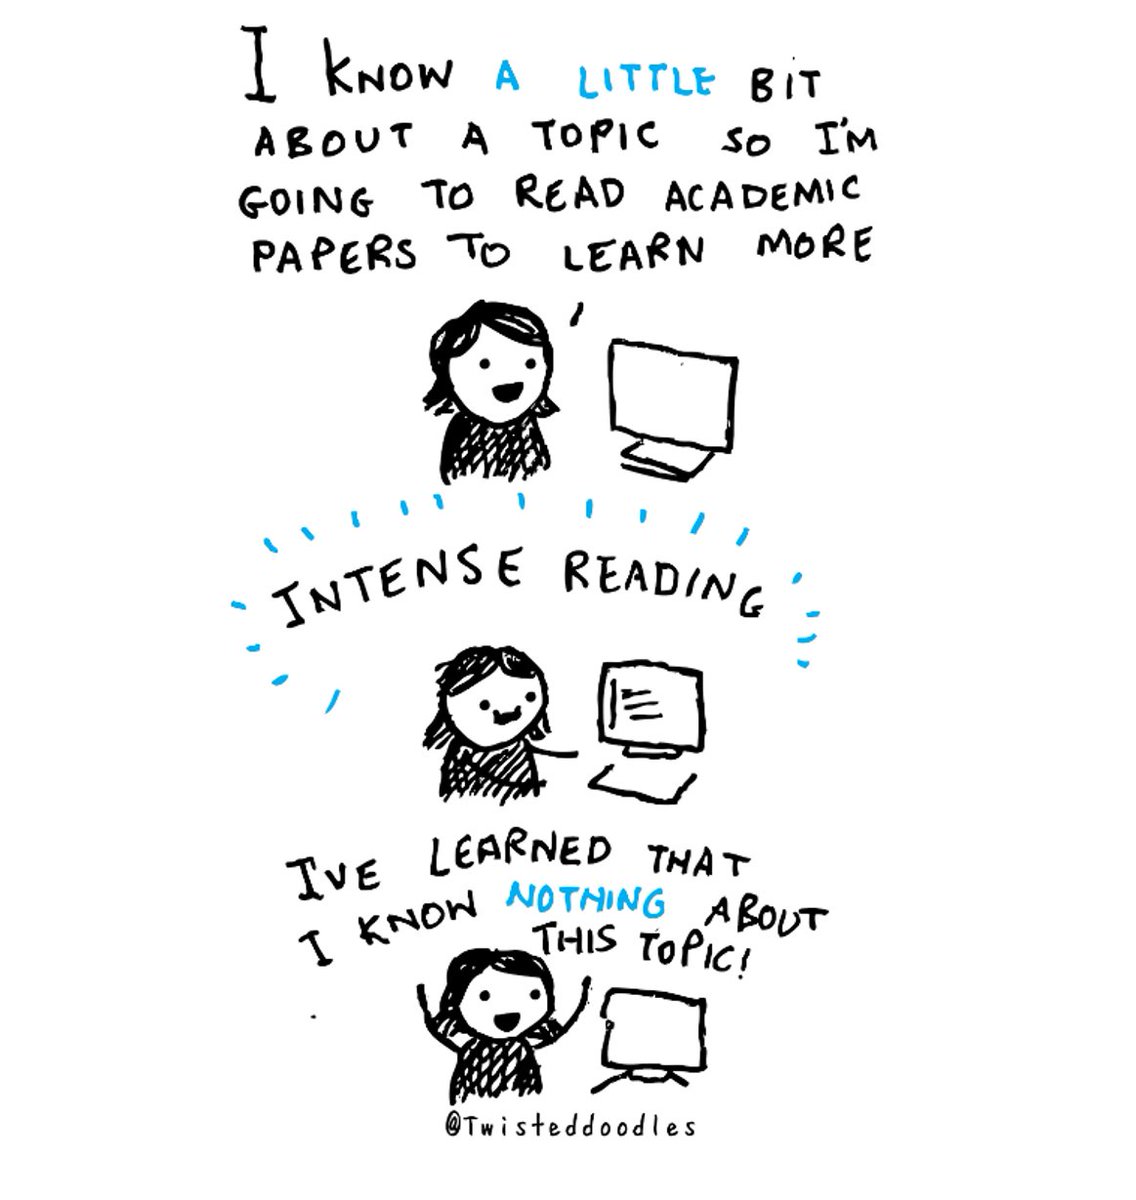 I KNOW A LITTLE BIT
ABOUT A TOPIC SO I'M
GOING TO READ ACADEMIC
PAPERS TO LEARN MORE
INTENSE READING
I'VE LEARNED THAT
I KNOW NOTHING ABOUT
THIS TOPIC!
@Twisteddoodles